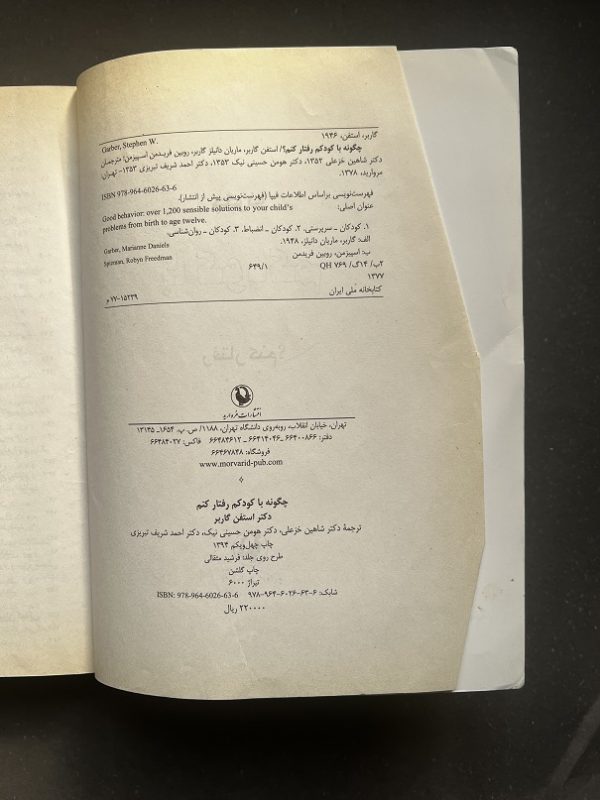 Garber, Stephen W. گاربر، استفن، ۱۹۴۶
چگونه با کودکم رفتار کنم؟/ استفن گاربر، ماریان دانیلز گاربر، روبین فریدمن اسپیزمن؛ مترجمان
دکتر شاهین خزعلی، ۱۳۵۲، دکتر هومن حسینی نیک، ۱۳۵۲، دکتر احمد شریف تبریزی ۱۳۵۳- تهران:
مروارید، ۱۳۷۸.
ISBN 978-964-6026-63-6
فهرست‌نویسی براساس اطلاعات فیپا (فهرست‌نویسی پیش از انتشار).
عنوان اصلی: Good behavior: over 1,200 sensible solutions to your child's
problems from birth to age twelve.
۱. کودکان ـ سرپرستی. ۲. کودکان ـ انضباط. ۳. کودکان ـ روان‌شناسی.
الف: گاربر، ماریان دانیلز، ۱۹۴۸. Garber, Marianne Daniels
ب: اسپیزمن، روبین فریدمن Spizman, Robyn Freedman
۲ب/ ۱۴گ/ QH ۷۶۹ ۶۴۹/۱
۱۳۷۷
کتابخانه ملی ایران ۷۷-۱۵۲۳۹ م
انتشارات مروارید
تهران، خیابان انقلاب، روبه‌روی دانشگاه تهران، ۱۱۸۸/ ص.پ. ۱۶۵۴ـ ۱۳۱۴۵
دفتر: ۶۶۴۰۰۸۶۶ ـ ۶۶۴۱۴۰۴۶ ۶۶۴۸۴۶۱۲ فاکس: ۶۶۴۸۴۰۲۷
فروشگاه: ۶۶۴۶۷۸۴۸
www.morvarid-pub.com
چگونه با کودکم رفتار کنم
دکتر استفن گاربر
ترجمهٔ دکتر شاهین خزعلی، دکتر هومن حسینی نیک، دکتر احمد شریف تبریزی
چاپ چهل‌ویکم ۱۳۹۴
طرح روی جلد: فرشید مثقالی
چاپ گلشن
تیراژ ۶۰۰۰
شابک: ۶-۶۳-۶۰۲۶-۹۶۴-۹۷۸ ISBN: 978-964-6026-63-6
۲۲۰۰۰۰ ریال